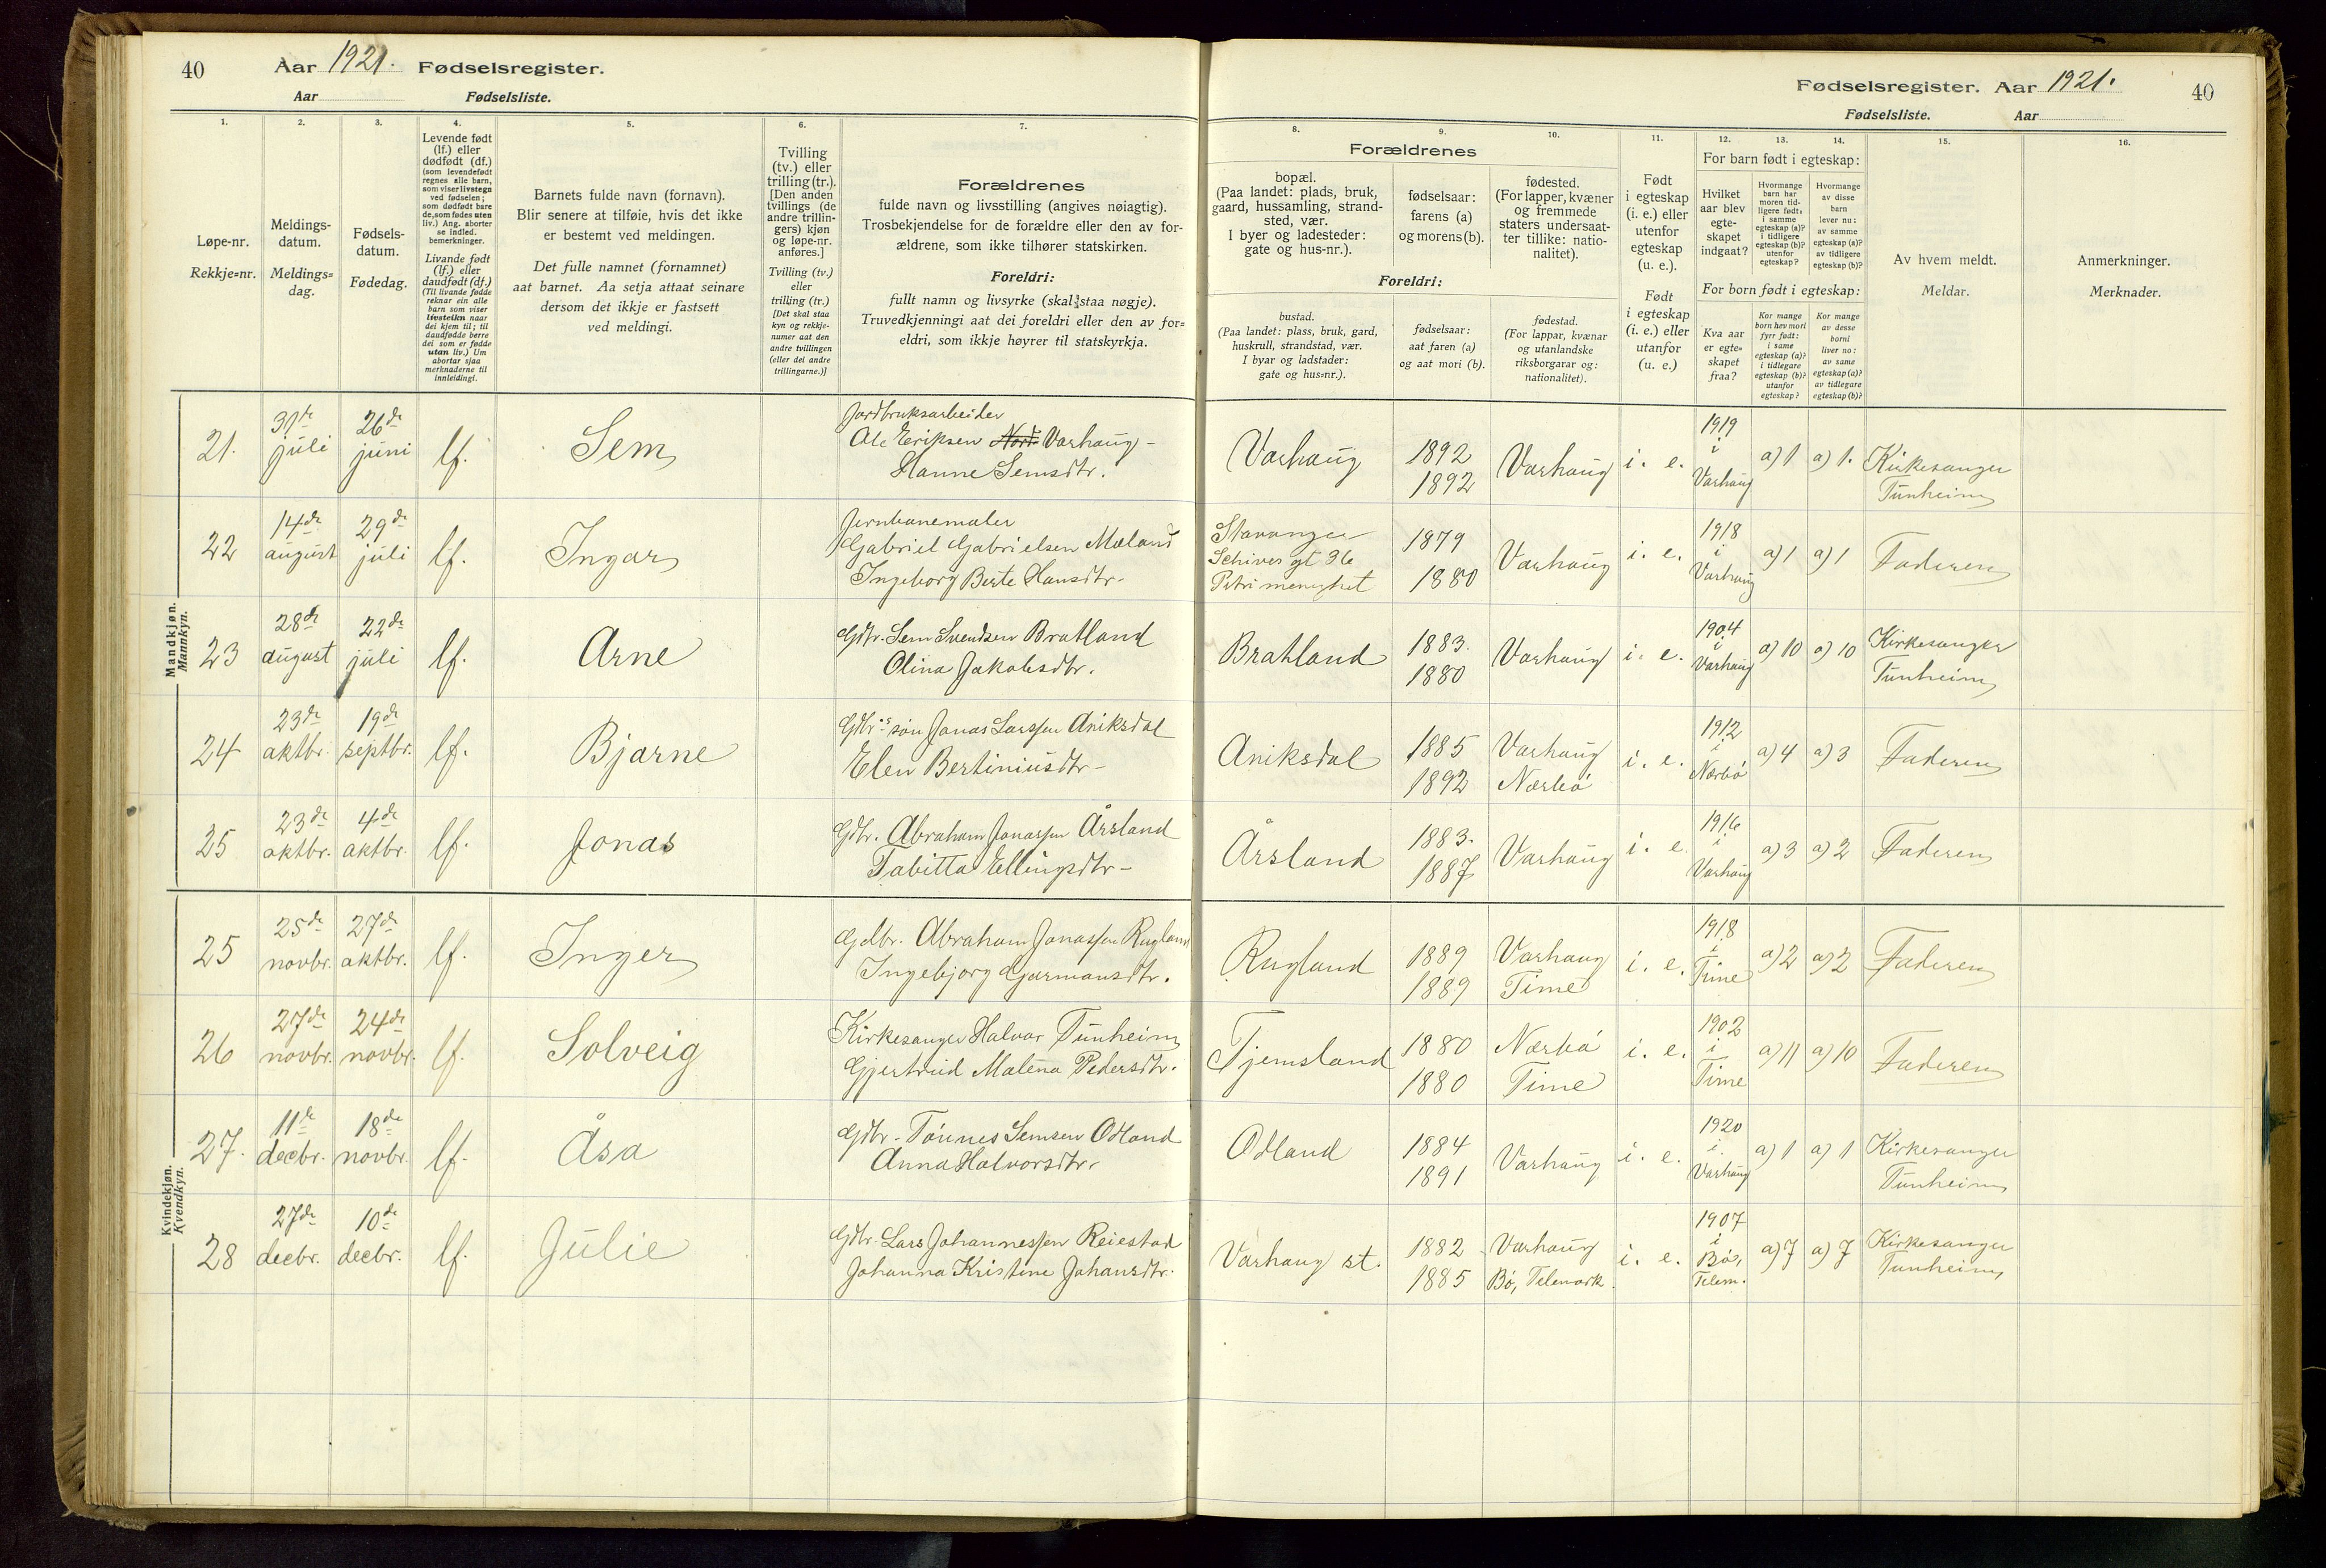 40 Aar 1921. Fødselsregister.
Aar Fødselsliste.
Fødselsregister. Aar 1921. 40
Fødselsliste. Aar
1.
Løpe-nr.
Rekkje=nr.
2.
Meldings-
datum.
Meldings=
dag.
3.
Fødsels-
datum.
Fødedag.
4.
Levende født
(lf.) eller
dødfødt (df.)
(som levendefødt
regnes alle barn,
som viser livstegn
ved fødselen;
som dødfødt bare
de, som fødes uten
liv.) Ang. aborter
se indled.
bemerkninger.
Livande født
(lf.) eller
daudfødt (df.)
(Til livande fødde
reknar ein alle
barn som viser
livsteikn naar
dei kjem til; til
daudfødde berre
dei som er fødde
utan liv.) Um
abortar sjaa
merknaderne til
innleidingi.
5.
Barnets fulde navn (fornavn).
Blir senere at tilføie, hvis det ikke
er bestemt ved meldingen.
Det fulle namnet (fornamnet)
aat barnet. Aa setja attaat seinare
dersom det ikkje er fastsett
ved meldingi.
6.
Tvilling
(tv.) eller
trilling (tr.).
[Den anden
tvillings (de
andre trillin-
gers) kjøn
og løpe-nr.
anføres.]
Tvilling (tv.)
eller
trilling (tr.)
[Det skal staa
kyn og rekkje-
numer aat den
andre tvillingen
(eller dei andre
trillingarne.)]
7.
Forældrenes
fulde navn og livsstilling (angives nøiagtig).
Trosbekjendelse for de forældre eller den av for-
ældrene, som ikke tilhører statskirken.
Foreldri:
fullt namn og livsyrke (skal staa nøgje).
Truvedkjenningi aat dei foreldri eller den av for=
eldri, som ikkje høyrer til statskyrkja.
Forældrenes
8.
bopæl.
(Paa landet: plads, bruk,
gaard, hussamling, strand-
sted, vær.
I byer og ladesteder:
gate og hus-nr.).
9.
fødselsaar:
farens (a)
og morens (b).
10.
fødested.
(For lapper, kvæner
og fremmede
staters undersaat-
ter tillike: natio-
nalitet).
Foreldri:
bustad.
(Paa landet: plass, bruk, gard,
huskrull, strandstad, vær.
I byar og ladstader:
gate og hus=nr.).
fødselsaar:
aat faren (a)
og aat mori (b).
fødestad.
(For lappar, kvænar
og utanlandske
riksborgarar og:
nationalitet).
11.
Født
i egteskap
(i. e.) eller
utenfor
egteskap
(u. e.).
Født
i egteskap
(i. e.) eller
utanfor
(u. e.)
12. 13. 14.
For barn født i egteskap:
Hvilket
aar blev
egte-
skapet
indgaat?
Hvormange
barn har
moren tid-
ligere født:
i samme
egteskap (a)?
i tidligere
egteskap (b)?
utenfor
egteskap?
Hvormange
av disse
barn
lever nu:
av samme
egteskap (a)?
av tidligere
egteskap (b)?
For born født i egteskap:
Kva aar
er egte=
skapet
fraa?
Kor mange
born hev mori
fyrr født:
i same
egteskap (a)?
i tidlegare
egteskap (b)?
utanfor
egteskap?
Kor mange
av desse
borni
liver no:
av same
egteskap (a)?
av tidlegare
egteskap (b)?
15.
Av hvem meldt.
Meldar.
16.
Anmerkninger.
Merknader.
Mandkjøn.
Mannkyn.
21. 31te juli 26de juni lf. Sem
Jordbruksarbeider
Ole Eriksen Nord- Varhaug -
Hanne Semsdtr.
Varhaug 1892 1892 Varhaug i. e. 1919 i Varhaug a) 1 a) 1. Kirkesanger Tunheim
22 14de august 29de juli lf. Ingar
Jernbanemaler
Gabriel Gabrielsen Mæland
Ingeborg Berte Hansdtr.
Stavanger
Schives gt 36
Petri menighet
1879 1880 Varhaug i. e. 1918 i Varhaug a) 1 a) 1 Faderen
23 28de august 22de juli lf. Arne
Gdbr. Sem Svendsen Bratland
Olina Jakobsdtr.
Bratland 1883. 1880 Varhaug i. e. 1904 i Varhaug a) 10 a) 10 Kirkesanger Tunheim
24 23de oktbr. 19de septbr. lf. Bjarne
Gdbr.s søn Jonas Larssen Aniksdal
Elen Bertiniusdtr -
Aniksdal 1885 1892 Varhaug Nærbø i. e. 1912 i Nærbø a) 4 a) 3 Faderen
25 23de oktbr. 4de oktbr. lf. Jonas
Gdbr. Abraham Jonassen Årsland
Tabitta Ellingsdtr -
Årsland 1883. 1887 Varhaug i. e. 1916 i Varhaug a) 3 a) 2 Faderen
Kvindekjøn.
Kvendkyn.
25 25de novbr. 27de oktbr. lf. Inger
Gdbr. Abraham Jonassen Rugland
Ingebjørg Garmansdtr.
Rugland 1889 1889 Varhaug Time i. e. 1918 i Time a) 2 a) 2 Faderen
26 27de novbr. 24de novbr. lf. Solveig
Kirkesanger Halvor Tunheim
Gjertrud Malena Pedersdtr.
Tjemsland 1880 1880 Nærbø Time i. e. 1902 i Time a) 11 a) 10 Faderen
27. 11te decbr. 18de novbr. lf. Åsa
Gdbr. Tønnes Semsen Odland
Anna Halvorsdtr.
Odland 1884 1891 Varhaug i. e. 1920 i Varhaug a) 1 a) 1 Kirkesanger Tunheim
28 27de decbr. 10de decbr. lf. Julie
Gdbr. Lars Johannessen Reiestad
Johanna Kristine Johansdtr.
Varhaug st. 1882 1885 Varhaug Bø, Telemark. i. e. 1907 i Bø, Telem. a) 7 a) 7 Kirkesanger Tunheim